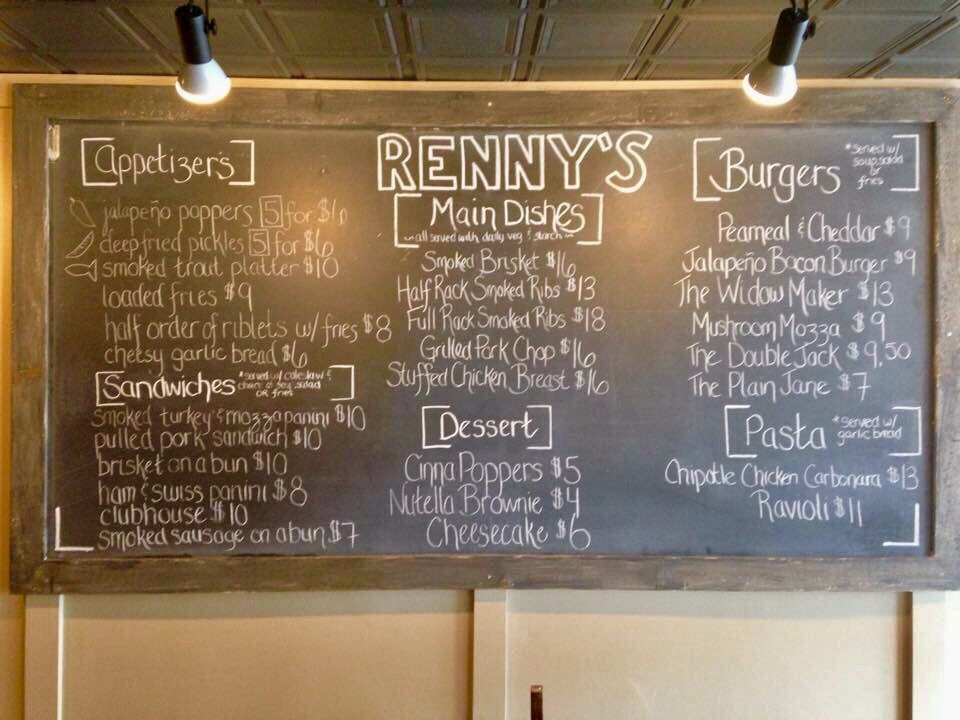 RENNY'S
[Appetizers]
jalapeño poppers 5 for $6
deep fried pickles 5 for $6
smoked trout platter $10
loaded fries $9
half order of riblets w/ fries $8
cheesy garlic bread $6
[Sandwiches]
*served w/ coleslaw &
choice of soup, salad
OR fries
smoked turkey & mozza panini $10
pulled pork sandwich $10
brisket on a bun $10
ham & swiss panini $8
clubhouse $10
smoked sausage on a bun $7
[Main Dishes]
~ all served with daily veg & starch ~
Smoked Brisket $16
Half Rack Smoked Ribs $13
Full Rack Smoked Ribs $18
Grilled Pork Chop $16
Stuffed Chicken Breast $16
[Dessert]
Cinna Poppers $5
Nutella Brownie $4
Cheesecake $6
[Burgers]
*served w/
soup, salad
or
fries
Peameal & Cheddar $9
Jalapeño Bacon Burger $9
The Widow Maker $13
Mushroom Mozza $9
The Double Jack $9.50
The Plain Jane $7
[Pasta]
*served w/
garlic bread
Chipotle Chicken Carbonara $13
Ravioli $11